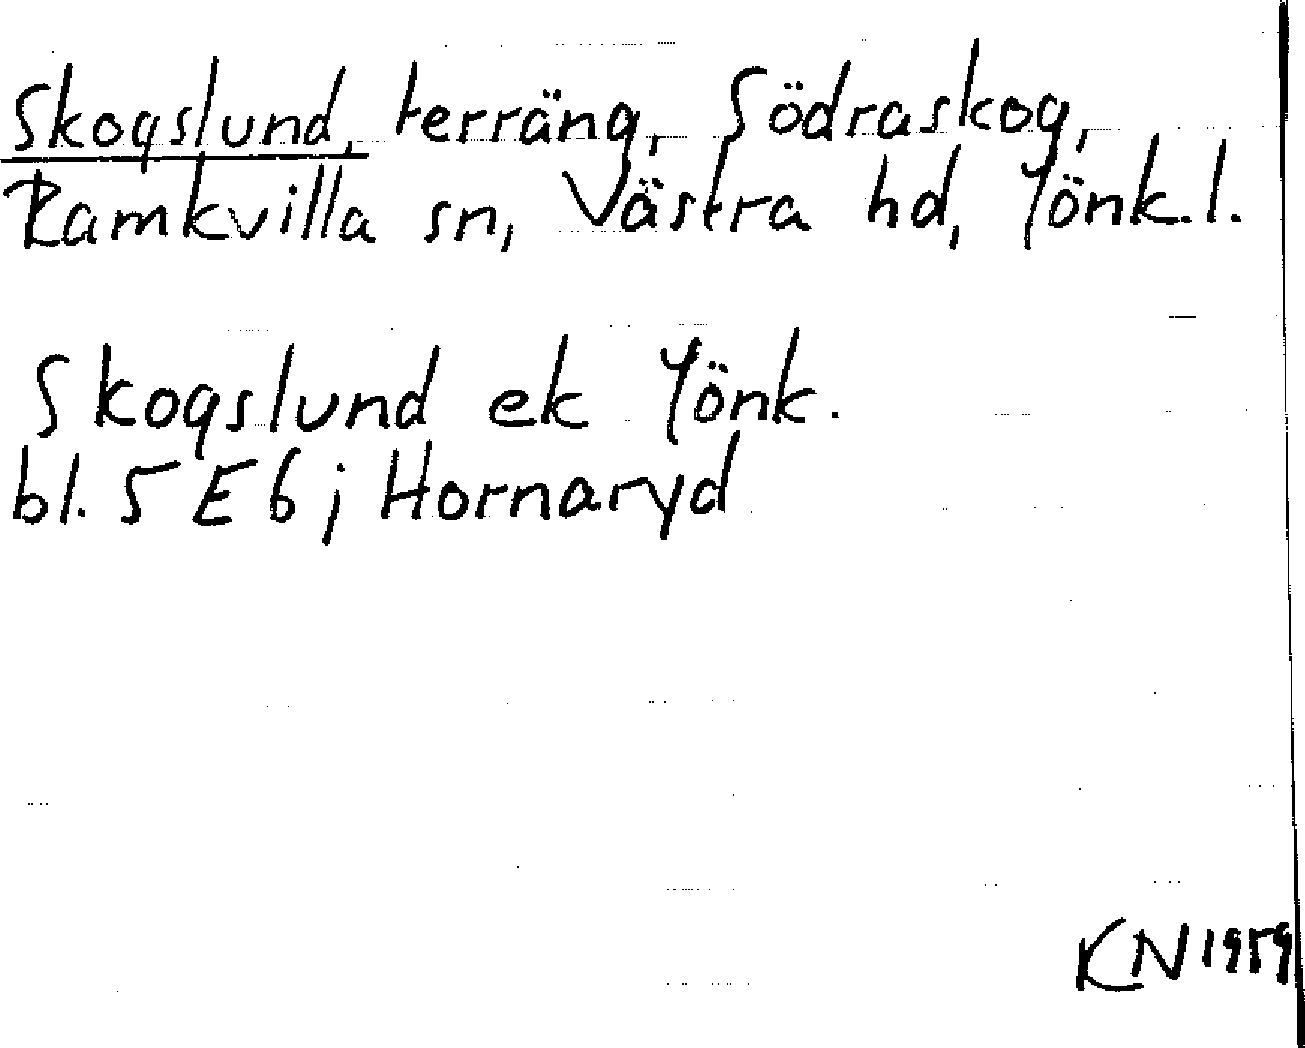 Skogslund, terräng, Södraskog,
Ramkvilla sn, Västra hd, Jönk. l.
Skogslund ek Jönk.
bl. 5 E 6 j Hornaryd
KN 1959